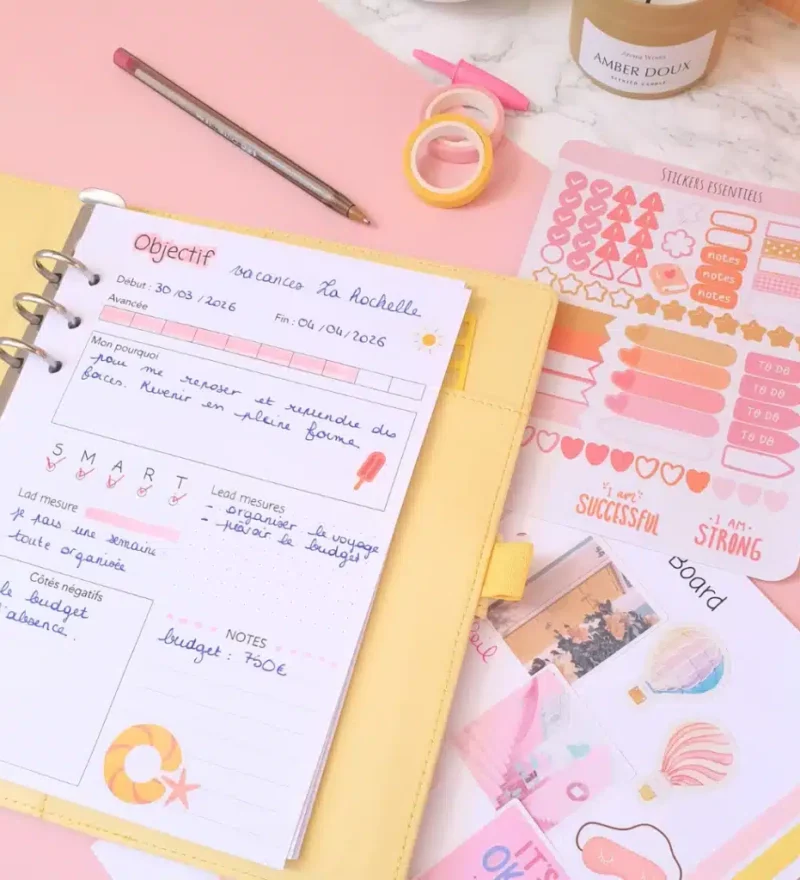 AMBER DOUX
SCENTED CANDLE
STICKERS ESSENTIELS
notes
notes
notes
TO DO
TO DO
TO DO
TO DO
I am
SUCCESSFUL
I AM
STRONG
Objectif vacances La Rochelle
Début : 30/03/2026
Fin : 04/04/2026
Avancée
Mon pourquoi
pour me reposer et reprendre des
forces. Revenir en pleine forme
S M A R T
Lad mesure
je pars une semaine
toute organisée
Lead mesures
- organiser le voyage
- prévoir le budget
Côtés négatifs
le budget
l'absence.
NOTES
budget : 750€
Board
IT'S
OK